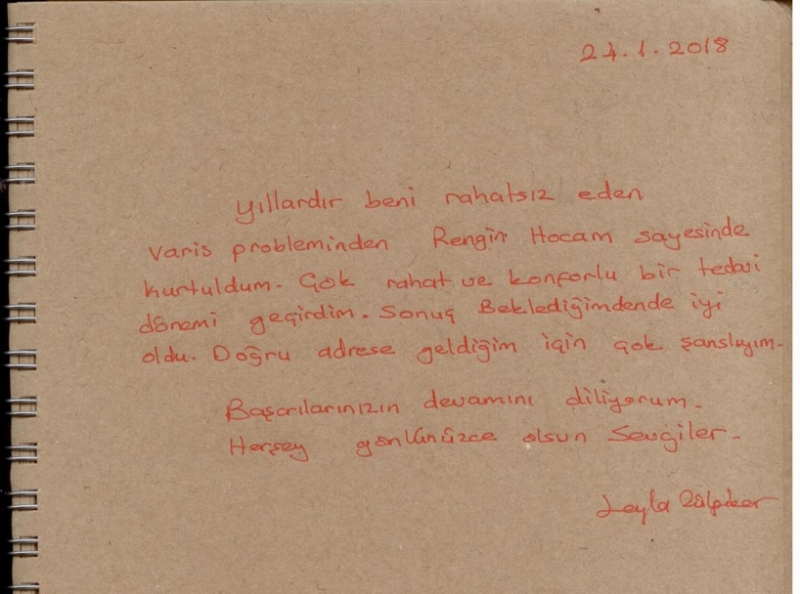 24.1.2018
yıllardır beni rahatsız eden
varis probleminden Rengin Hocam sayesinde
kurtuldum. Çok rahat ve konforlu bir tedavi
dönemi geçirdim. Sonuç Beklediğimdende iyi
oldu. Doğru adrese geldiğim için çok şanslıyım.
Başarılarınızın devamını diliyorum.
Herşey gönlünüzce olsun Sevgiler.
Leyla